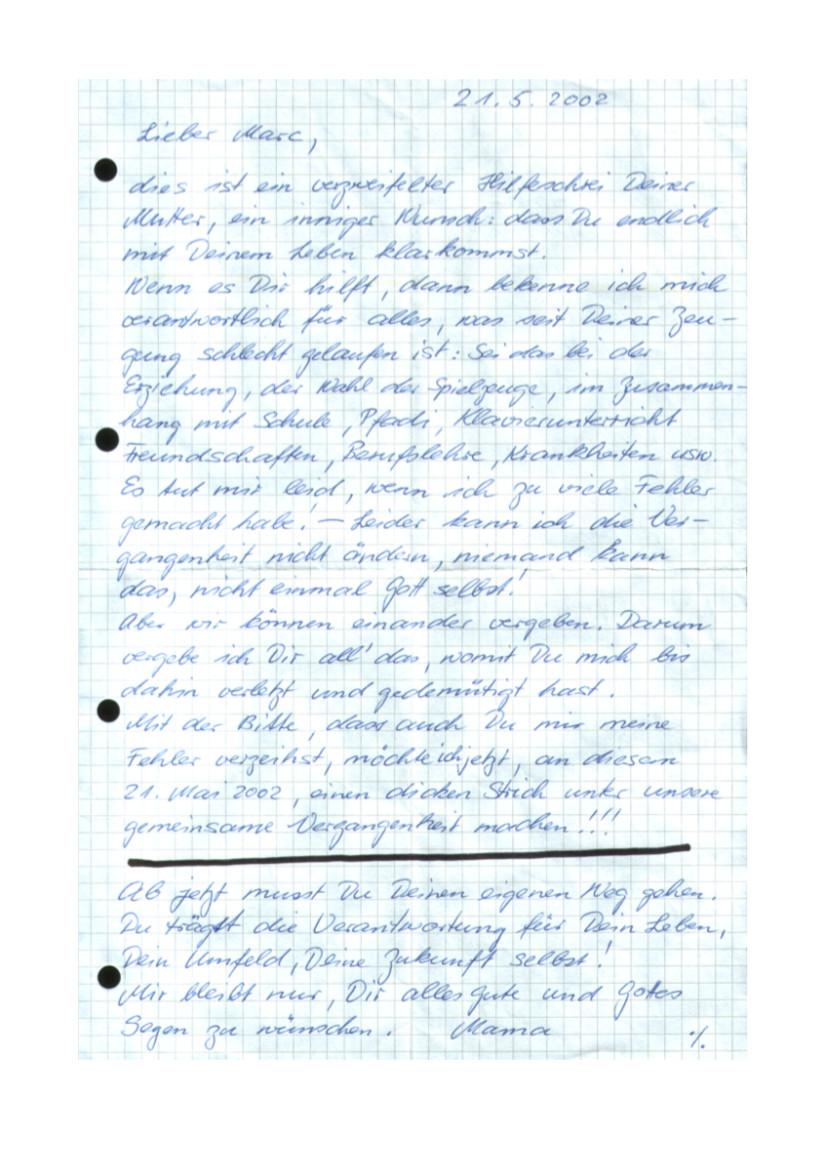 21.5.2002
Lieber Marc,
dies ist ein verzweifelter Hilfeschrei Deiner
Mutter, ein inniger Wunsch: dass Du endlich
mit Deinem Leben klarkommst.
Wenn es Dir hilft, dann bekenne ich mich
verantwortlich für alles, was seit Deiner Zeu-
gung schlecht gelaufen ist: Sei das bei der
Erziehung, der Wahl der Spielzeuge, im Zusammen-
hang mit Schule, Pfadi, Klavierunterricht
Freundschaften, Berufslehre, Krankheiten usw.
Es tut mir leid, wenn ich zu viele Fehler
gemacht habe! — Leider kann ich die Ver-
gangenheit nicht ändern, niemand kann
das, nicht einmal Gott selbst!
Aber wir können einander vergeben. Darum
vergebe ich Dir all' das, womit Du mich bis
dahin verletzt und gedemütigt hast.
Mit der Bitte, dass auch Du mir meine
Fehler verzeihst, möchte ich jetzt, an diesem
21. Mai 2002, einen dicken Strich unter unsere
gemeinsame Vergangenheit machen!!!
Ab jetzt musst Du Deinen eigenen Weg gehen.
Du trägst die Verantwortung für Dein Leben,
Dein Umfeld, Deine Zukunft selbst!
Mir bleibt nur, Dir alles Gute und Gottes
Segen zu wünschen. Mama
./.